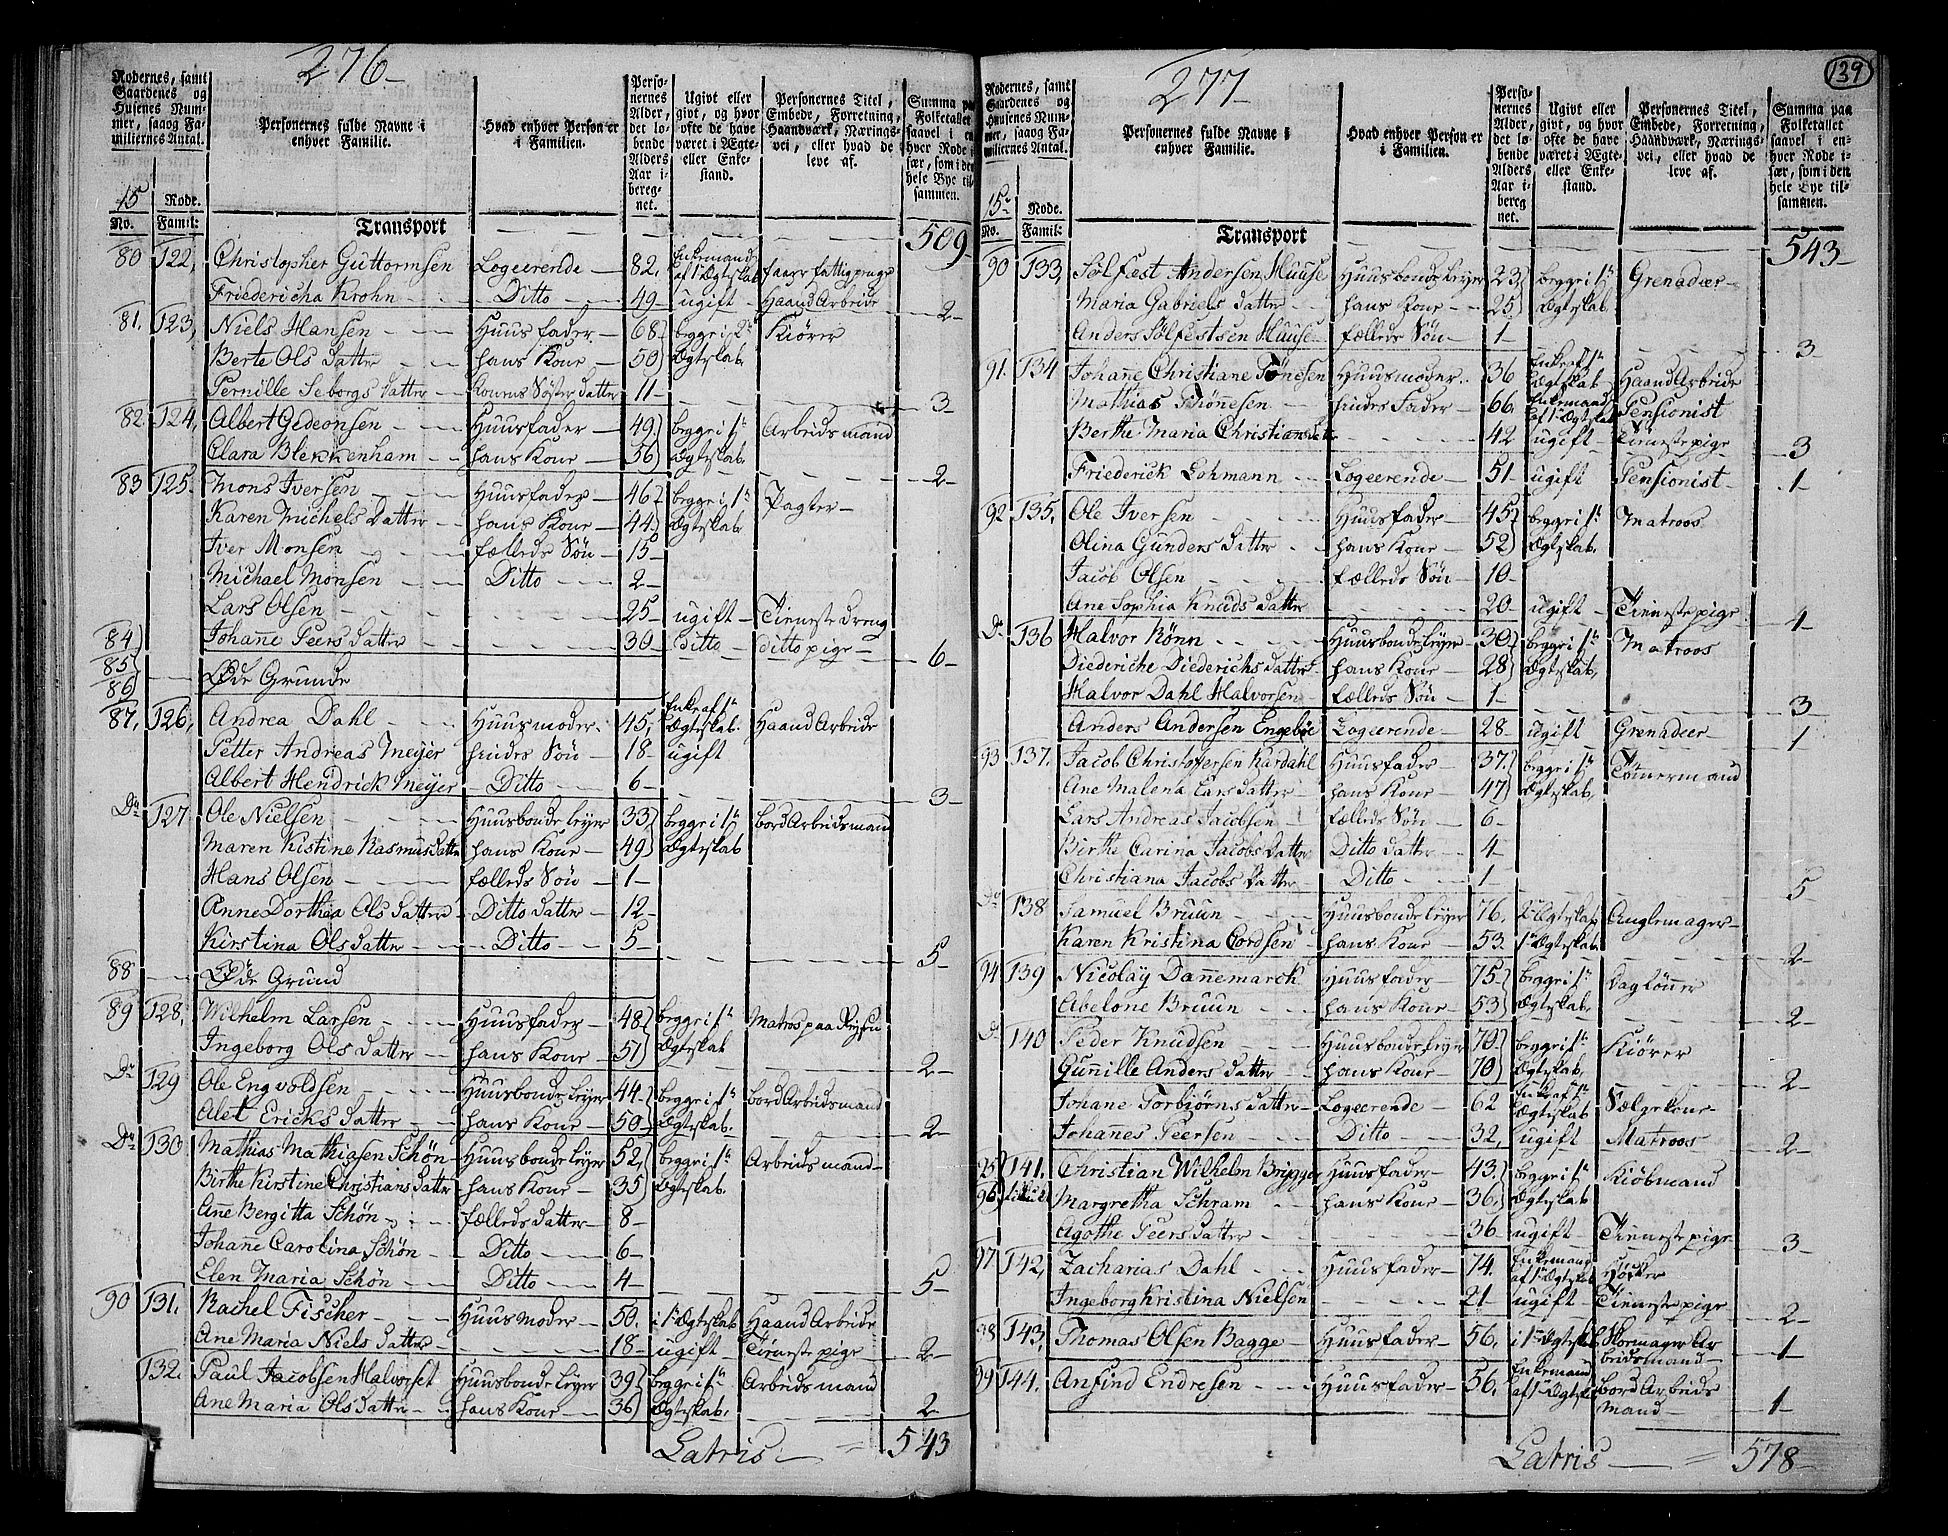 276
Rodernes, samt Gaardenes og Husenes Nummer, saaog Familiernes Antal.
Personernes fulde Navne i enhver Familie.
Hvad enhver Person er i Familien.
Personernes Alder, det løbende Alders Aar iberegnet.
Ugivt eller givt, og hvor ofte de have været i Ægte- eller Enkestand.
Personernes Titel, Embede, Forretning, Haandværk, Næringsvei, eller hvad de leve af.
Summa paa Folketallet saavel i en hver Rode især, som i den hele Bye tilsammen.
15 Rode.
No. Famil:
Transport 509
80 122, Christopher Guttormsen Logeerende 82, Enkemand af 1te Ægteskab faaer fattig penge
Friedericha Krohn Ditto 49 ugift Haand Arbeide 2
81. 123, Niels Hansen Huusfader 68 begge i 2det Kiører
Berte Ols datter hans Kone 50 Ægteskab
Pernille Seborgs datter Konens Søster datter 11 3
82. 124, Albert Gideonsen Huusfader 49 begge i 1te Arbeidsmand
Clara Blekkenham hans Kone 56 Ægteskab 2
83 125. Mons Iversen Huusfader 46 begge i 1te Pagter
Karen Michels datter hans Kone 44 Ægteskab
Iver Monsen fælleds Søn 15
Michael Monsen Ditto 2
Lars Olsen 25 ugift Tieneste dreng
Johanne Peers datter 30 Ditto ditto pige 6
84
85 Øde Grunde
86
87, 126, Andrea Dahl Huusmoder 45, Enke af 1te Ægteskab Haand Arbeide
Petter Andreas Meyer hendes Søn 18 ugift
Albert Hendrick Meyer Ditto 6 3
Do 127 Ole Nielsen Huusbonde Leyer 33 begge i 1te bord Arbeidsmand
Maren Kistine Rasmusdatter hans Kone 49 Ægteskab
Hans Olsen fælleds Søn 1
Anne Dorthea Ols datter Ditto datter 12
Kirstina Olsdatter Ditto 5 5
88 Øde Grund
89 128, Wilhelm Larsen Huusfader 48 begge i 1te Matros paa Reysen
Ingeborg Ols datter hans Kone 51 Ægteskab 2
Do 129 Ole Engvoldsen Huusbonde Leyer 44 begge i 1te bord Arbeidsmand
Alet Ericks datter hans Kone 50 Ægteskab. 2
Do 130 Mathias Mathiasen Schön Huusbonde Leyer 52, begge i 1te Arbeidsmand
Birthe Kirstine Christians datter hans Kone 35 Ægteskab.
Ane Bergitta Schön fælleds datter 8
Johanne Carolina Schön Ditto 6
Elen Maria Schön Ditto 4 5
90 131. Rachel Fischer Huusmoder 50. i 1te Ægteskab Haand Arbeide
Ane Maria Niels datter 18 ugift Tieneste pige 2
132. Paul Jacobsen Halvorset Huusbonde Leyer 39 begge i 1te Arbeidsmand
Ane Maria Ols datter hans Kone 36 Ægteskab. 2
Latris = 543
277
139
Rodernes, samt Gaardenes og Husenes Nummer, saaog Familiernes Antal.
Personernes fulde Navne i enhver Familie.
Hvad enhver Person er i Familien.
Personernes Alder, det løbende Alders Aar iberegnet.
Ugivt eller givt, og hvor ofte de have været i Ægte- eller Enkestand.
Personernes Titel, Embede, Forretning, Haandværk, Næringsvei, eller hvad de leve af.
Summa paa Folketallet saavel i en hver Rode især, som i den hele Bye tilsammen.
15de Rode.
No. Famil:
Transport 543
90 133, Sølfest Andersen Huuse Huusbonde Leyer 23 begge i 1te Grenadeer
Maria Gabriels datter hans Kone 25 Ægteskab
Anders Sølfestsen Huuse fælleds Søn 1 3
91. 134 Johanne Christiane Tønesen Huusmoder 36 Enke af 1te Ægteskab Haand Arbeide
Mathias Thönnesen hendes Fader 66 Enkemand af 1te Ægteskab Pensionist
Berthe Maria Christiansdatter 42 ugift Tieneste pige 3
Friederick Lohmann Logeerende 51 ugift Pensionist 1
92 135, Ole Iversen Huusfader 45 begge i 1te Matroos
Olina Gunders datter hans Kone 52 Ægteskab.
Jacob Olsen fælleds Søn 10
Ane Sophia Knuds datter 20 ugift Tieneste pige 4
Do 136 Halvor Kønn Huusbonde Leyer 30 begge i 1te Matroos
Diederiche Diederichs datter hans Kone 28 Ægteskab.
Halvor Dahl Halvorsen fælleds Søn 1 3
Anders Andersen Engebøe Logeerende 28 ugift Grenadeer 1
93 137. Jacob Christophersen Kårdahl Huusfader 37. begge i 1te Tømermand
Ane Malena Lars datter hans Kone 47 Ægteskab.
Lars Andreas Jacobsen fælleds Søn 6
Birthe Carina Jacobs datter Ditto datter 4
Christiana Jacobs datter Ditto 1 5
Do 138 Samuel Bruun Huusbonde Leyer 76. Ægteskab Anglemager
Karen Kristina Cordsen hans Kone 53. 1te Ægteskab. 2
94 139 Nicolaÿ Dannemarck Huusfader 75 begge i 1te Dagløner
Abelone Bruun hans Kone 53 Ægteskab. 2
Do 140 Peder Knudsen Huusbonde Leyer 70 begge i 1te Kiører
Gunnille Anders datter hans Kone 70 Ægteskab. 2
Johane Torbiørns datter Logeerende 62 Enke af 1te Ægteskab Sælgekone
Johannes Peersen Ditto 32, ugift Matroos 2
95 141. Christian Wilhelm Brigge Huusfader 43. begge i 1te Kiøbmand
96 Margretha Schram hans Kone 36. Ægteskab
Agathe Peers datter 36 ugift Tieneste pige 3
97 142, Zacharias Dahl Huusfader 74. Enkemand af 1te Ægteskab Høker
Ingeborg Kristina Nielsen 21 ugift Tieneste pige 2
98 143, Thomas Olsen Bagge Huusfader 56. i 1te Ægteskab Skomager Arbeidsmand 1
99 144. Anfind Endresen Huusfader 56. Enkemand af 1te Ægteskab bord Arbeids mand 1
Latris = 578